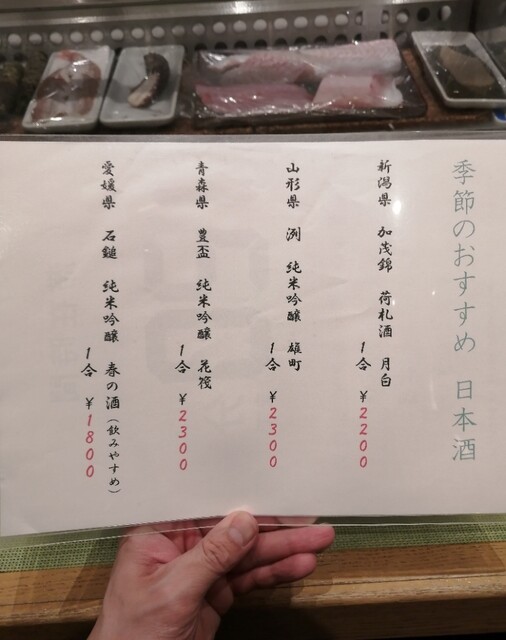 季節のおすすめ 日本酒
新潟県 加茂錦 荷札酒 月白
1合 ¥2200
山形県 洌 純米吟醸 雄町
1合 ¥2300
青森県 豊盃 純米吟醸 花筏
1合 ¥2300
愛媛県 石鎚 純米吟醸 春の酒(飲みやすめ)
1合 ¥1800